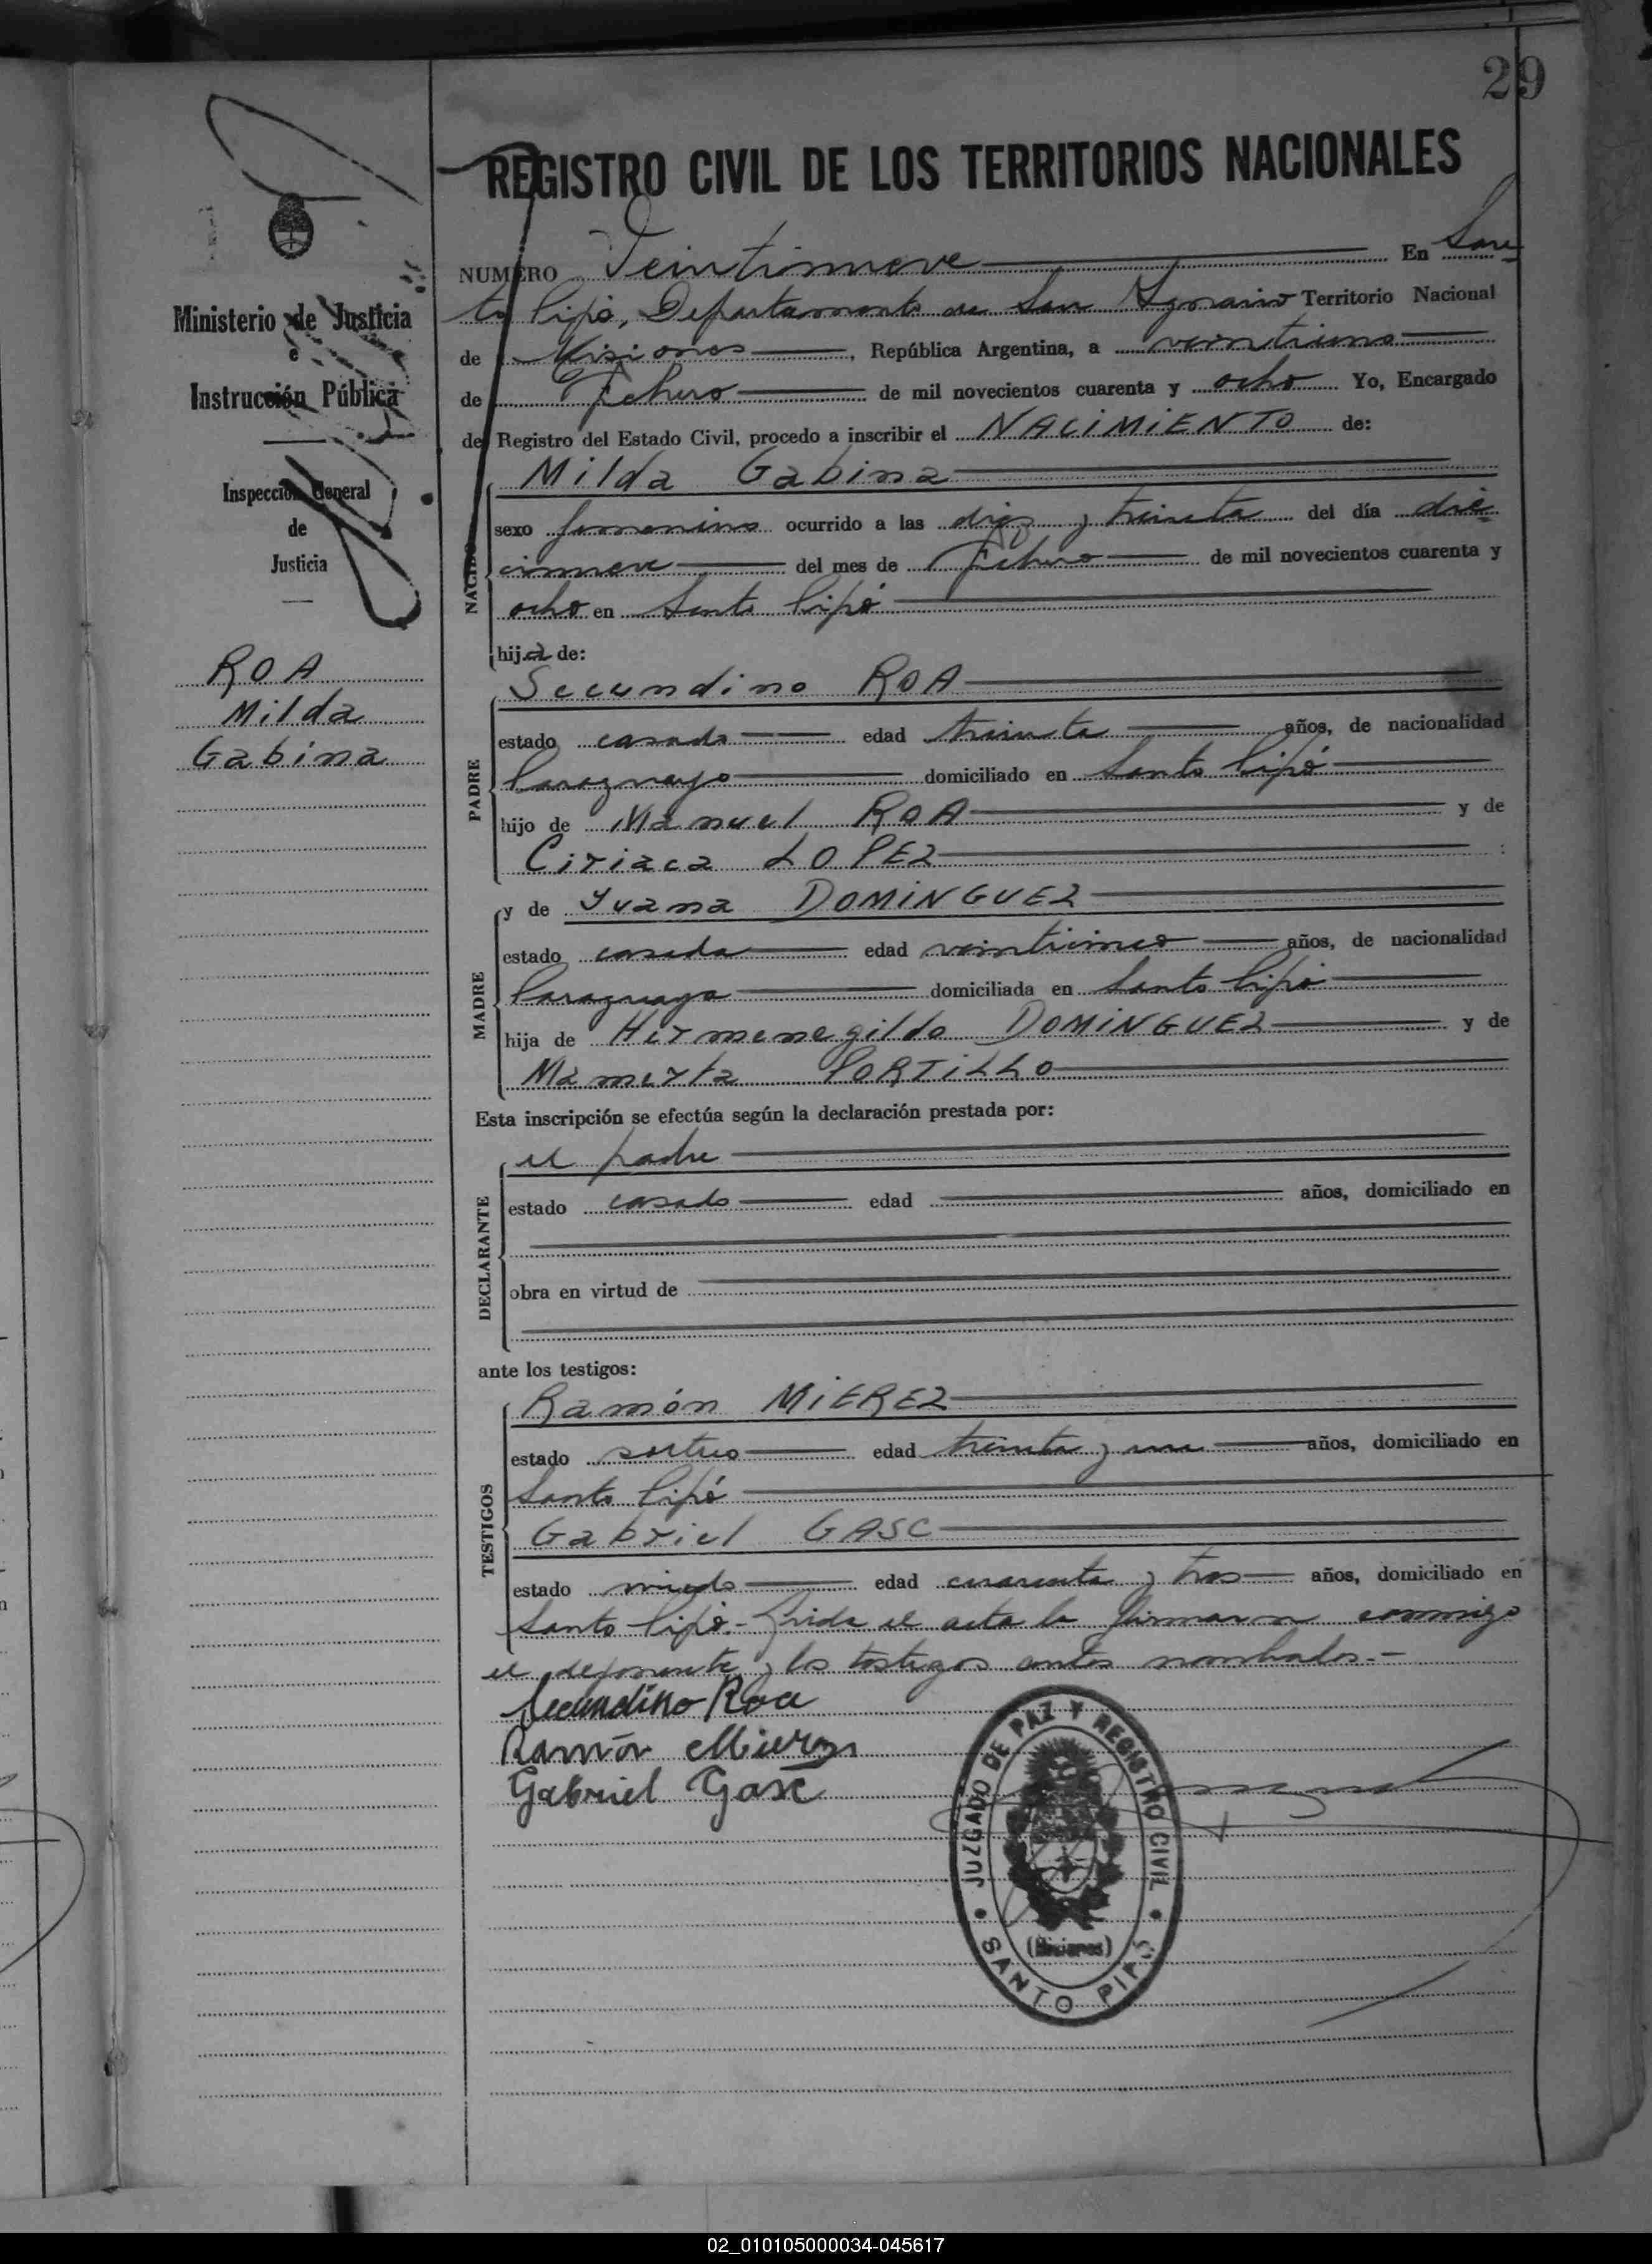 29
REGISTRO CIVIL DE LOS TERRITORIOS NACIONALES
NUMERO Veintinueve En San
to Pipó, Departamento de San Ignacio Territorio Nacional
de Misiones, República Argentina, a veintiuno
de Febrero de mil novecientos cuarenta y ocho Yo, Encargado
del Registro del Estado Civil, procedo a inscribir el NACIMIENTO de:
Milda Gabina
sexo femenino ocurrido a las diez y treinta del día die
cinueve del mes de Febrero de mil novecientos cuarenta y
ocho en Santo Pipó
hija de:
NACIDO
Secundino ROA
estado casado edad treinta años, de nacionalidad
Paraguayo domiciliado en Santo Pipó
hijo de Manuel ROA y de
Ciriaca LOPEZ
PADRE
y de Juana DOMINGUEZ
estado casada edad veinticinco años, de nacionalidad
Paraguaya domiciliada en Santo Pipó
hija de Hermenegildo DOMINGUEZ y de
Mamerta PORTILLO
MADRE
Esta inscripción se efectúa según la declaración prestada por:
el padre
estado casado edad años, domiciliado en
obra en virtud de
DECLARANTE
ante los testigos:
Ramón MIEREZ
estado soltero edad treinta y un años, domiciliado en
Santo Pipó
Gabriel GASC
estado viudo edad cuarenta y tres años, domiciliado en
Santo Pipó.- Leída el acta la firmaron conmigo
el deponente y los testigos antes nombrados.-
TESTIGOS
Secundino Roa
Ramón Mierez
Gabriel Gasc
JUZGADO DE PAZ Y REGISTRO CIVIL
(Misiones)
SANTO PIPÓ
Ministerio de Justicia
e
Instrucción Pública
Inspección General
de
Justicia
ROA
Milda
Gabina
02_010105000034-045617